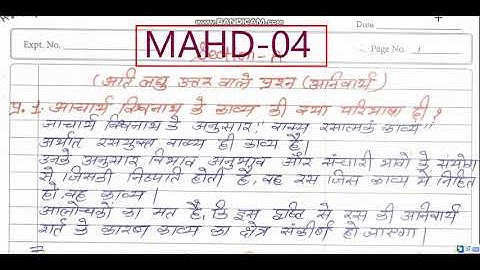 www.BANDICAM.com
Date
Expt. No.
MAHD-04
Page No. 1
Section - A
(अति लघु उत्तर वाले प्रश्न (अनिवार्य)
प्र. 1. आचार्य विश्वनाथ ने काव्य की क्या परिभाषा दी ?
आचार्य विश्वनाथ के अनुसार, "वाक्य रसात्मकं काव्य"
अर्थात रसयुक्त वाक्य ही काव्य है।
उनके अनुसार विभाव अनुभाव और संचारी भावों के संयोग
से जिसकी निष्पति होती है, वह रस जिस काव्य मे निहित
हो, वह काव्य।
आलोचकों का मत है, कि इस दृष्टि से रस की अनिवार्य
शर्त के कारण काव्य का क्षेत्र संकीर्ण हो जाएगा।